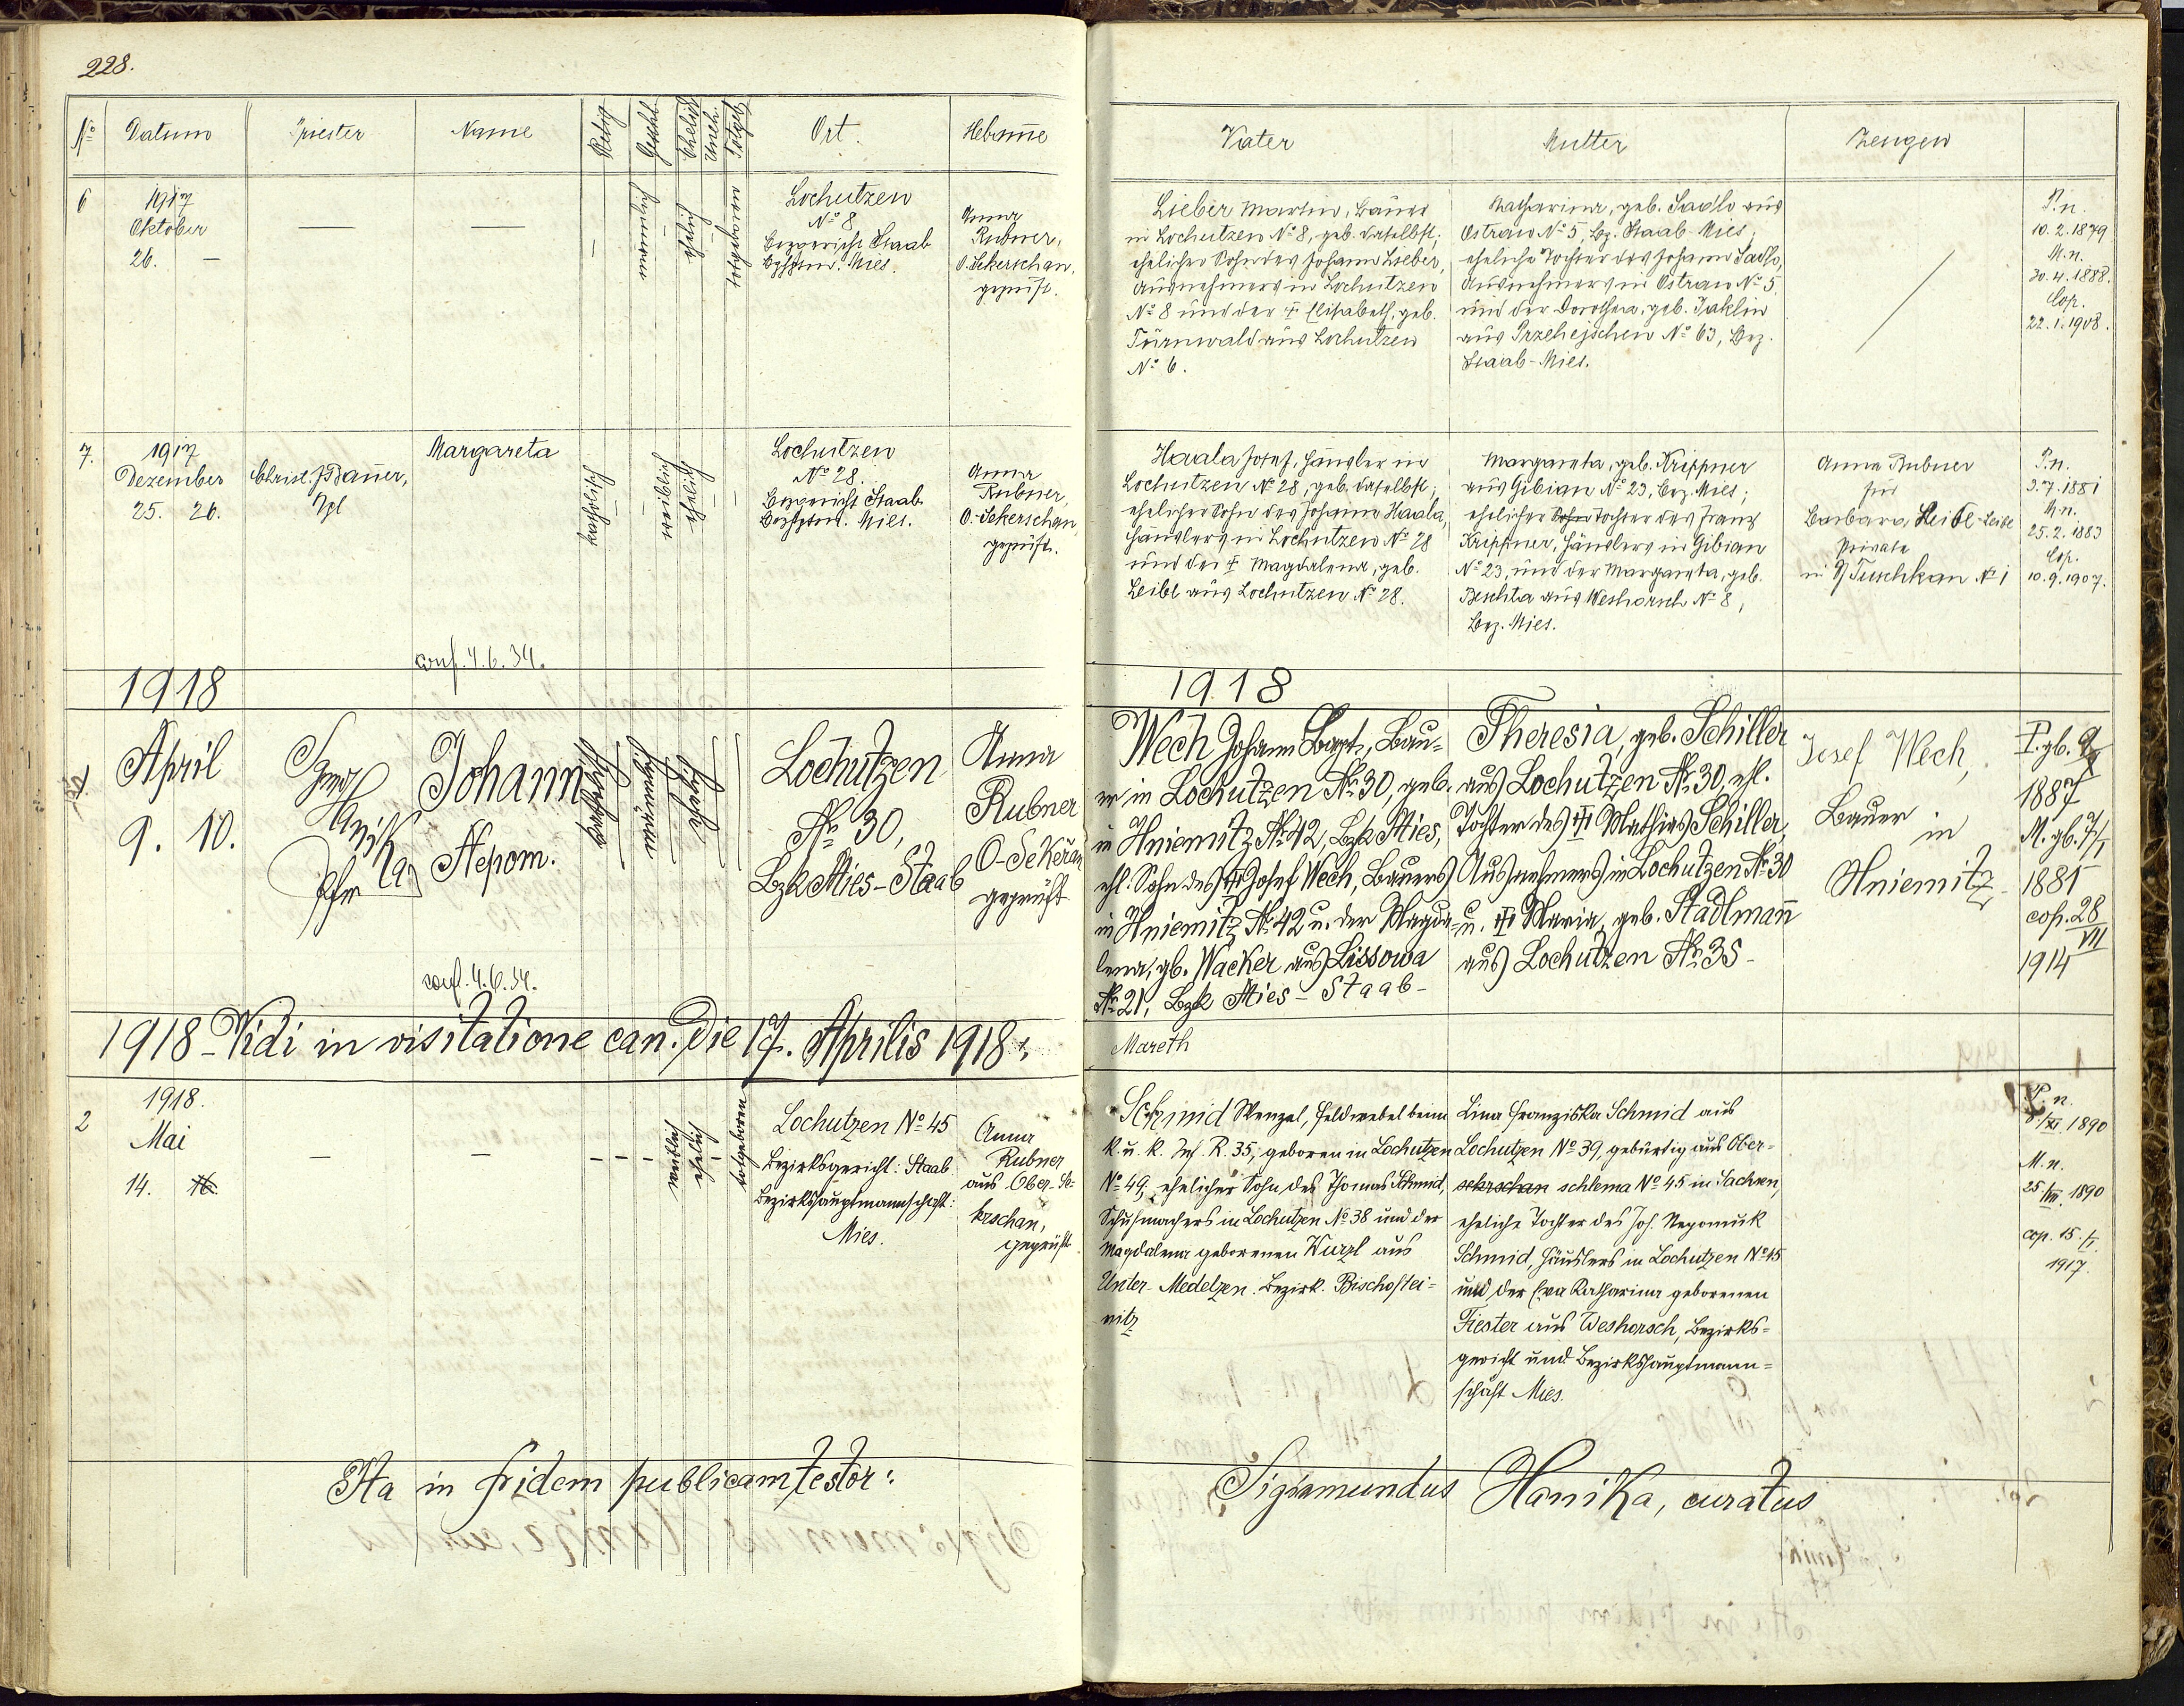 228.
No Datum Priester Name Relig Geschl Ehelich Uneh. Totgeb Ort. Hebam̄e
6
1917
Oktober
26. —
—
—
männlich
ehelich
totgeboren
Lochutzen
No 8
Bezgericht Staab
Mies.
Anna
Rubner,
O. Sekerschan,
geprüft.
7.
1917
Dezember
25. 26.
Christ. J. Bauer,
Margareta
katholisch
weiblich
ehelich
Lochutzen
No 28.
Bezgericht Staab
Mies.
Anna
Rubner,
O. Sekerschan
geprüft.
conf. 4.6.34.
1918
April
9. 10.
Sigm
Hanika
Pfr
Johann
Nepom.
katholisch
männlich
ehelich
Lochutzen
No 30,
Bzk Mies-Staab
Anna
Rubner
O-Sekeřan
geprüft
conf. 4.6.34.
1918 - Vidi in visitatione can. die 17. Aprilis 1918:
2
1918.
Mai
14. 16.
—
—
weiblich
ehelich
totgeboren
Lochutzen No 45
Bezirksgericht: Staab
Bezirkshauptmannschaft:
Mies.
Anna
Rubner
aus Ober-Se-
kerschan,
geprüft.
Ita in fidem publicam testor:
Vater Mutter Zeugen
Lieber Martin, Bauer
in Lochutzen No 8, geb. daselbst;
ehelicher Sohn des Johann Lieber,
Ausnehmers in Lochutzen
No 8 und der † Elisabeth, geb.
Türnwald aus Lochutzen
No 6.
Katharina, geb. Sadlo aus
Ostrau No 5, Bz. Staab-Mies;
eheliche Tochter des Johann Sadlo,
Ausnehmers in Ostrau No 5
und der Dorothea, geb. Jaklin
aus Przehejschen No 63, Bez.
Staab-Mies.
P.n.
10.2.1879
M.n.
30.4.1888.
Cop.
22.1.1908.
Haala Josef, Häusler in
Lochutzen No 28, geb. daselbst;
ehelicher Sohn des Johann Haala,
Häuslers in Lochutzen No 28
und der † Magdalena, geb.
Leibl aus Lochutzen No 28.
Margareta, geb. Krippner
aus Gibian No 23, Bez. Mies;
ehelicher Sohn Tochter des Franz
Krippner, Häuslers in Gibian
No 23, und der Margareta, geb.
Beschta aus Weshorsch No 8,
Bez. Mies.
Anna Rubner
für
Barbara Leibl
Private
in Tuschkau No 1
P.n.
3.7.1881
M.n.
25.2.1883
Cop.
10.9.1907.
1918
Wech Johann Bapt., Bau-
er in Lochutzen No 30, geb.
in Hniemitz No 42, Bzk Mies,
ehl. Sohn des † Josef Wech, Bauers
in Hniemitz No 42 u. der Magda-
lena, gb. Wacker aus Lissowa
No 21, Bzk Mies-Staab-
Theresia, geb. Schiller
aus Lochutzen No 30, ehl.
Tochter des † Mathias Schiller,
Ausnehmers in Lochutzen No 30
u. † Maria, geb. Stadlman̄
aus Lochutzen No 35-
Josef Wech,
Bauer
in
Hniemitz
P. gb.
1887
M. gb. 7/I
1881
cop. 28/VII
1914
Mareth
Schmid Wenzel, Feldwebel beim
k. u. k. Inf. R. 35, geboren in Lochutzen
No 49, ehelicher Sohn des Thomas Schmid,
Schuhmachers in Lochutzen No 38 und der
Magdalena geborenen Wurzl aus
Unter-Medelzen. Bezirk. Bischoftei-
nitz
Lina Franziska Schmid aus
Lochutzen No 39, gebürtig aus Ober-
sekrschan schlema No 45 in Sachsen,
eheliche Tochter des Joh. Nepomuk
Schmid, Häuslers in Lochutzen No 45
und der Eva Katharina geborenen
Fiester aus Weshorsch, Bezirks-
gericht und Bezirkshauptmann-
schaft Mies.
P. n.
XI. 1890
M. n.
25./VII. 1890
cop. 15./I.
1917.
Sigismundus Hanika, curatus